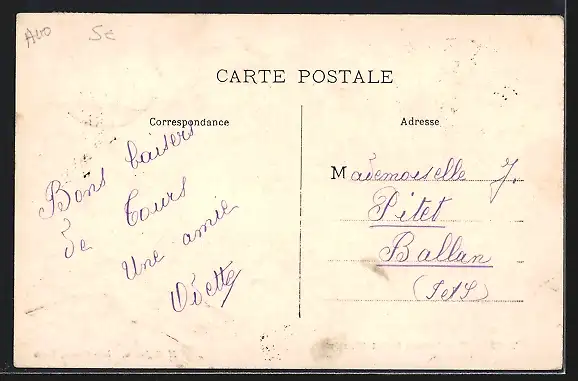 5e
CARTE POSTALE
Correspondance
Adresse
Bons baisers
de Tours
Une amie
Odette
Mademoiselle J.
Pitet
Ballan
(I et L)